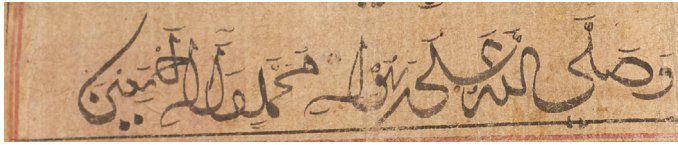 وَصَلَّى اللهُ عَلَى رَسُولِهِ مُحَمَّدٍ وَآلِهِ أَجْمَعِينَ